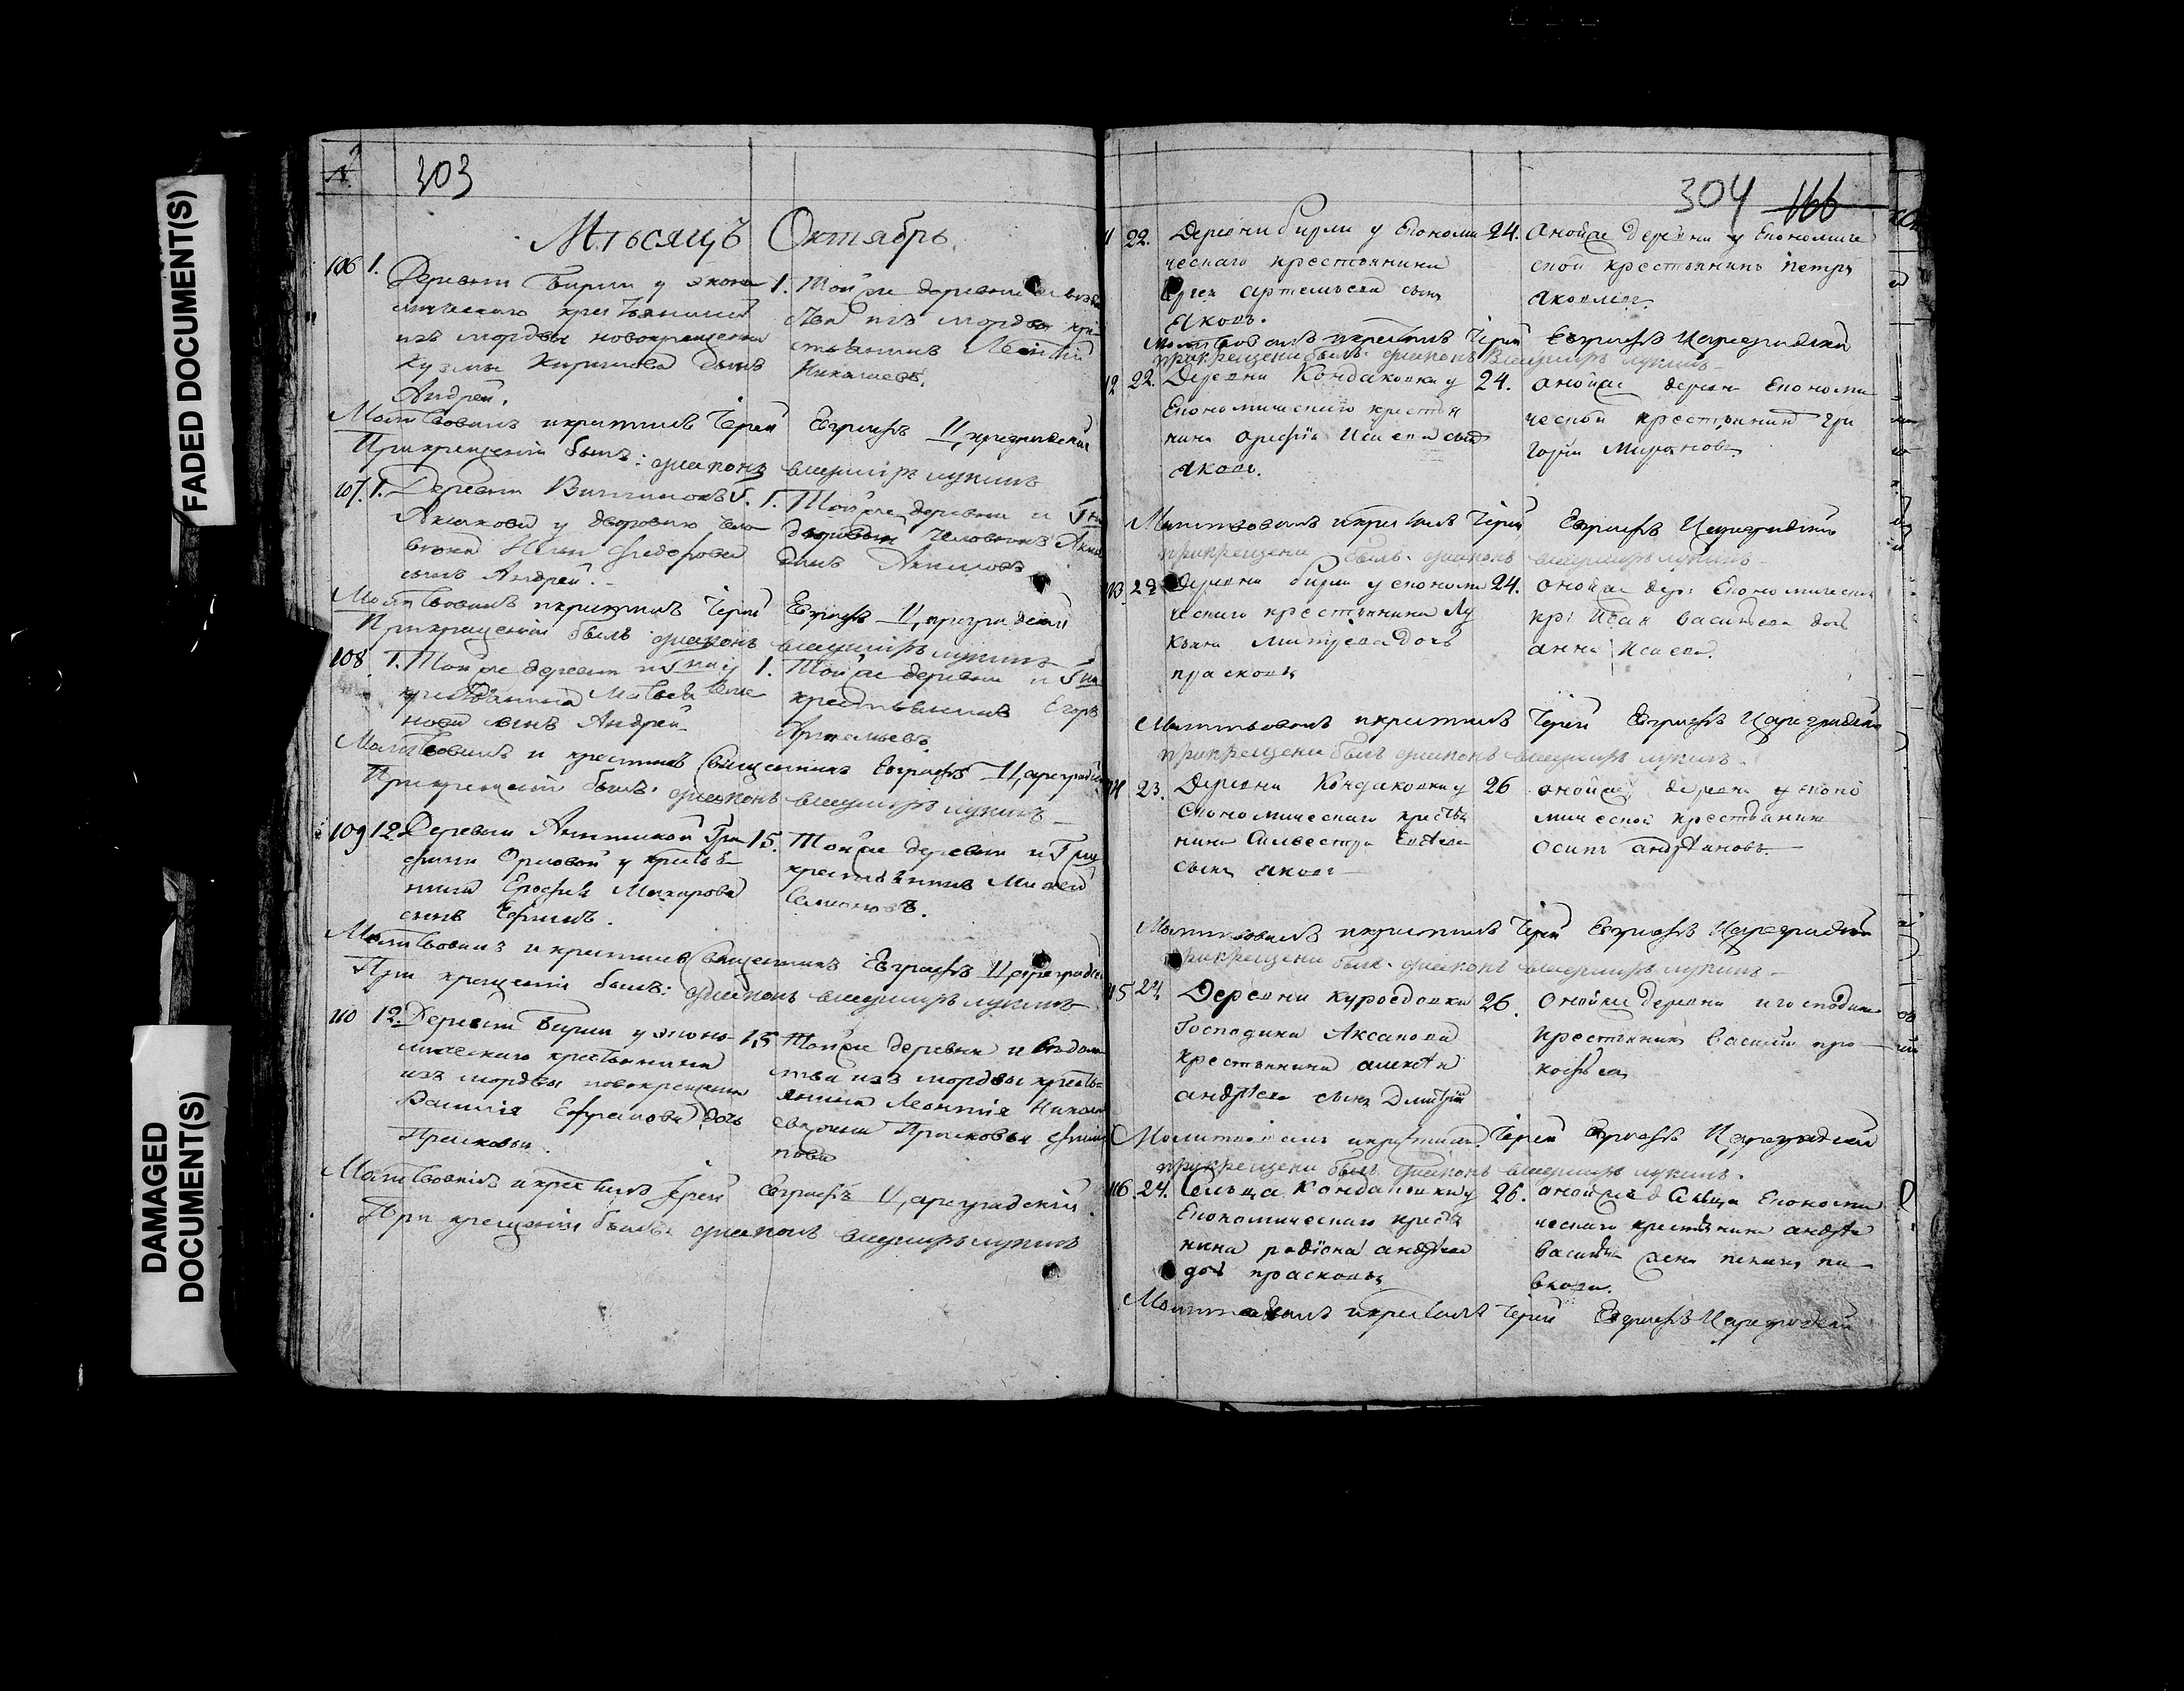 FADED DOCUMENT(S)
DAMAGED
DOCUMENT(S)
№ 303
Мѣсяцъ Октябрь
106 1. Деревни Бирли у эконо-
мическаго крестьянина
изъ мордвы новокрещена
Кузмы Кирилова сынъ
Андрей.
1. Той же деревни
изъ мордвы кре-
стьянинъ Леонтий
Николаевъ.
Молитвовалъ и крестилъ Іерей Евграфъ Цареградский
При крещении былъ: диаконъ Владимиръ Лукинъ
107. 1. Деревни
Аксакова у двороваго чело-
века Ильи Федорова
сынъ Андрей.
1. Той же деревни и
дворовый человекъ
Молитвовалъ и крестилъ Іерей Евграфъ Цареградский
При крещении былъ диаконъ Владимиръ Лукинъ
108. 1. Той же деревни и Гна у
крестьянина Матвея
сынъ Андрей
1. Той же деревни и Гна
крестьянинъ Егоръ
Артемьевъ.
Молитвовалъ и крестилъ Священникъ Евграфъ Цареградский
При крещении былъ: диаконъ Владимиръ Лукинъ
109 12. Деревни
Орловой у крестья-
нина Ерофея Макарова
сынъ Ефимъ.
15. Той же деревни и Гжи
крестьянинъ
Семионовъ.
Молитвовалъ и крестилъ Священникъ Евграфъ Цареградский
При крещении былъ: диаконъ Владимиръ Лукинъ
110 12. Деревни Бирли у эконо-
мическаго крестьянина
изъ мордвы новокрещена
Василия Ефремова дочь
Прасковья.
15 Той же деревни и ведом-
ства изъ мордвы кресть-
янина Леонтия Никола
евa жена Прасковья Филип
пова
Молитвовалъ и крестилъ Іерей Евграфъ Цареградский.
При крещении былъ: диаконъ Владимиръ Лукинъ
304 166
11 22. Деревни бирли у Економи
ческаго крестьянина
Артемьева сынъ
Яковъ.
24. Оной же деревни у Економиче
ской крестьянинъ Петръ
Яковлевъ.
Молитвовалъ и крестилъ Іерей Евграфъ Цареградский
при крещени былъ диаконъ Владимиръ Лукинъ
12 22. Деревни Кондаковки у
Економическаго крестья
нина Исаева сынъ
Яковъ.
24. Оной же деревни Економи
ческой крестьянинъ Гри
горий Мироновъ
Молитвовалъ и крестилъ Іерей Евграфъ Цареградский
при крещени былъ диаконъ Владимиръ Лукинъ
113. Деревни бирли у економи
ческаго крестьянина Лу
кьяна Митриева дочь
прасковья
24. Оной же дер: Економической
кр: Исая Васильева дочь
анна Исаева.
Молитвовалъ и крестилъ Іерей Евграфъ Цареградский
при крещени былъ диаконъ Владимиръ Лукинъ
23. Деревни Кондаковки у
Економическаго крестья
нина Сильвестра
сынъ яковъ
26 оной же деревни у еконо
мической крестьянинъ
осипъ андреяновъ
Молитвовалъ и крестилъ Іерей Евграфъ Цареградский
при крещени былъ диаконъ Владимиръ Лукинъ
15 24. Деревни Куроедовки
Господина Аксакова
крестьянина алексея
андреева сынъ Дмитрий
26. Оной же деревни и господина
крестьянинъ Василий про
кофьевъ
Молитвовалъ и крестилъ Іерей Евграфъ Цареградский
при крещени былъ диаконъ Владимиръ Лукинъ.
116. 24. Сельца Кондаковки у
Економическаго крестья
нина родиона андреева
дочь прасковья
26. оной же Сельца Економи
ческаго крестьянина андрея
Васильева жена
Молитвовалъ и крестилъ Іерей Евграфъ Цареградский